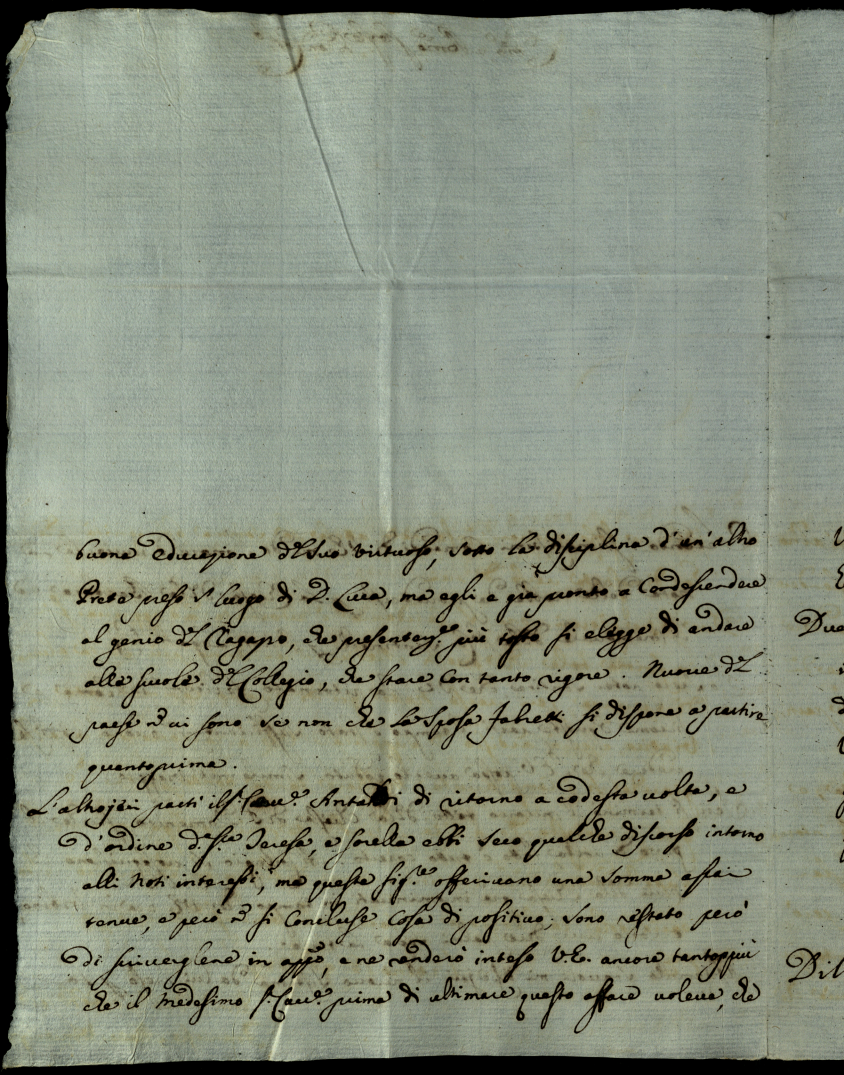 buona educazione dl suo virtuoso, sotto la disciplina d'un'altro
Prete preso in luogo di D. Luca, ma egli e già pronto a Condescendere
al genio dl Ragazo, che più tosto si elegge di andare
alle scuole dl Collegio, che stare con tanto rigore. Nuove dl
paese nõ vi sono se non che la Sposa si dispone a partire
quantoprima.
L'altrojeri partì il Sr. Cav.e di ritorno a codesta volta, e
d'ordine Teresa, e sorella ebbi seco qualche discorso intorno
alli noti interessi, ma queste Sig.re offerivano una somma assai
tenue, e però nõ si concluse cosa di positivo; sono restato però
di scriverglene in appõ, e ne renderò inteso V.E. ancora tantoppiù
che il medesimo Sr. Cav.e prima di ultimare questo affare voleva, che
Due